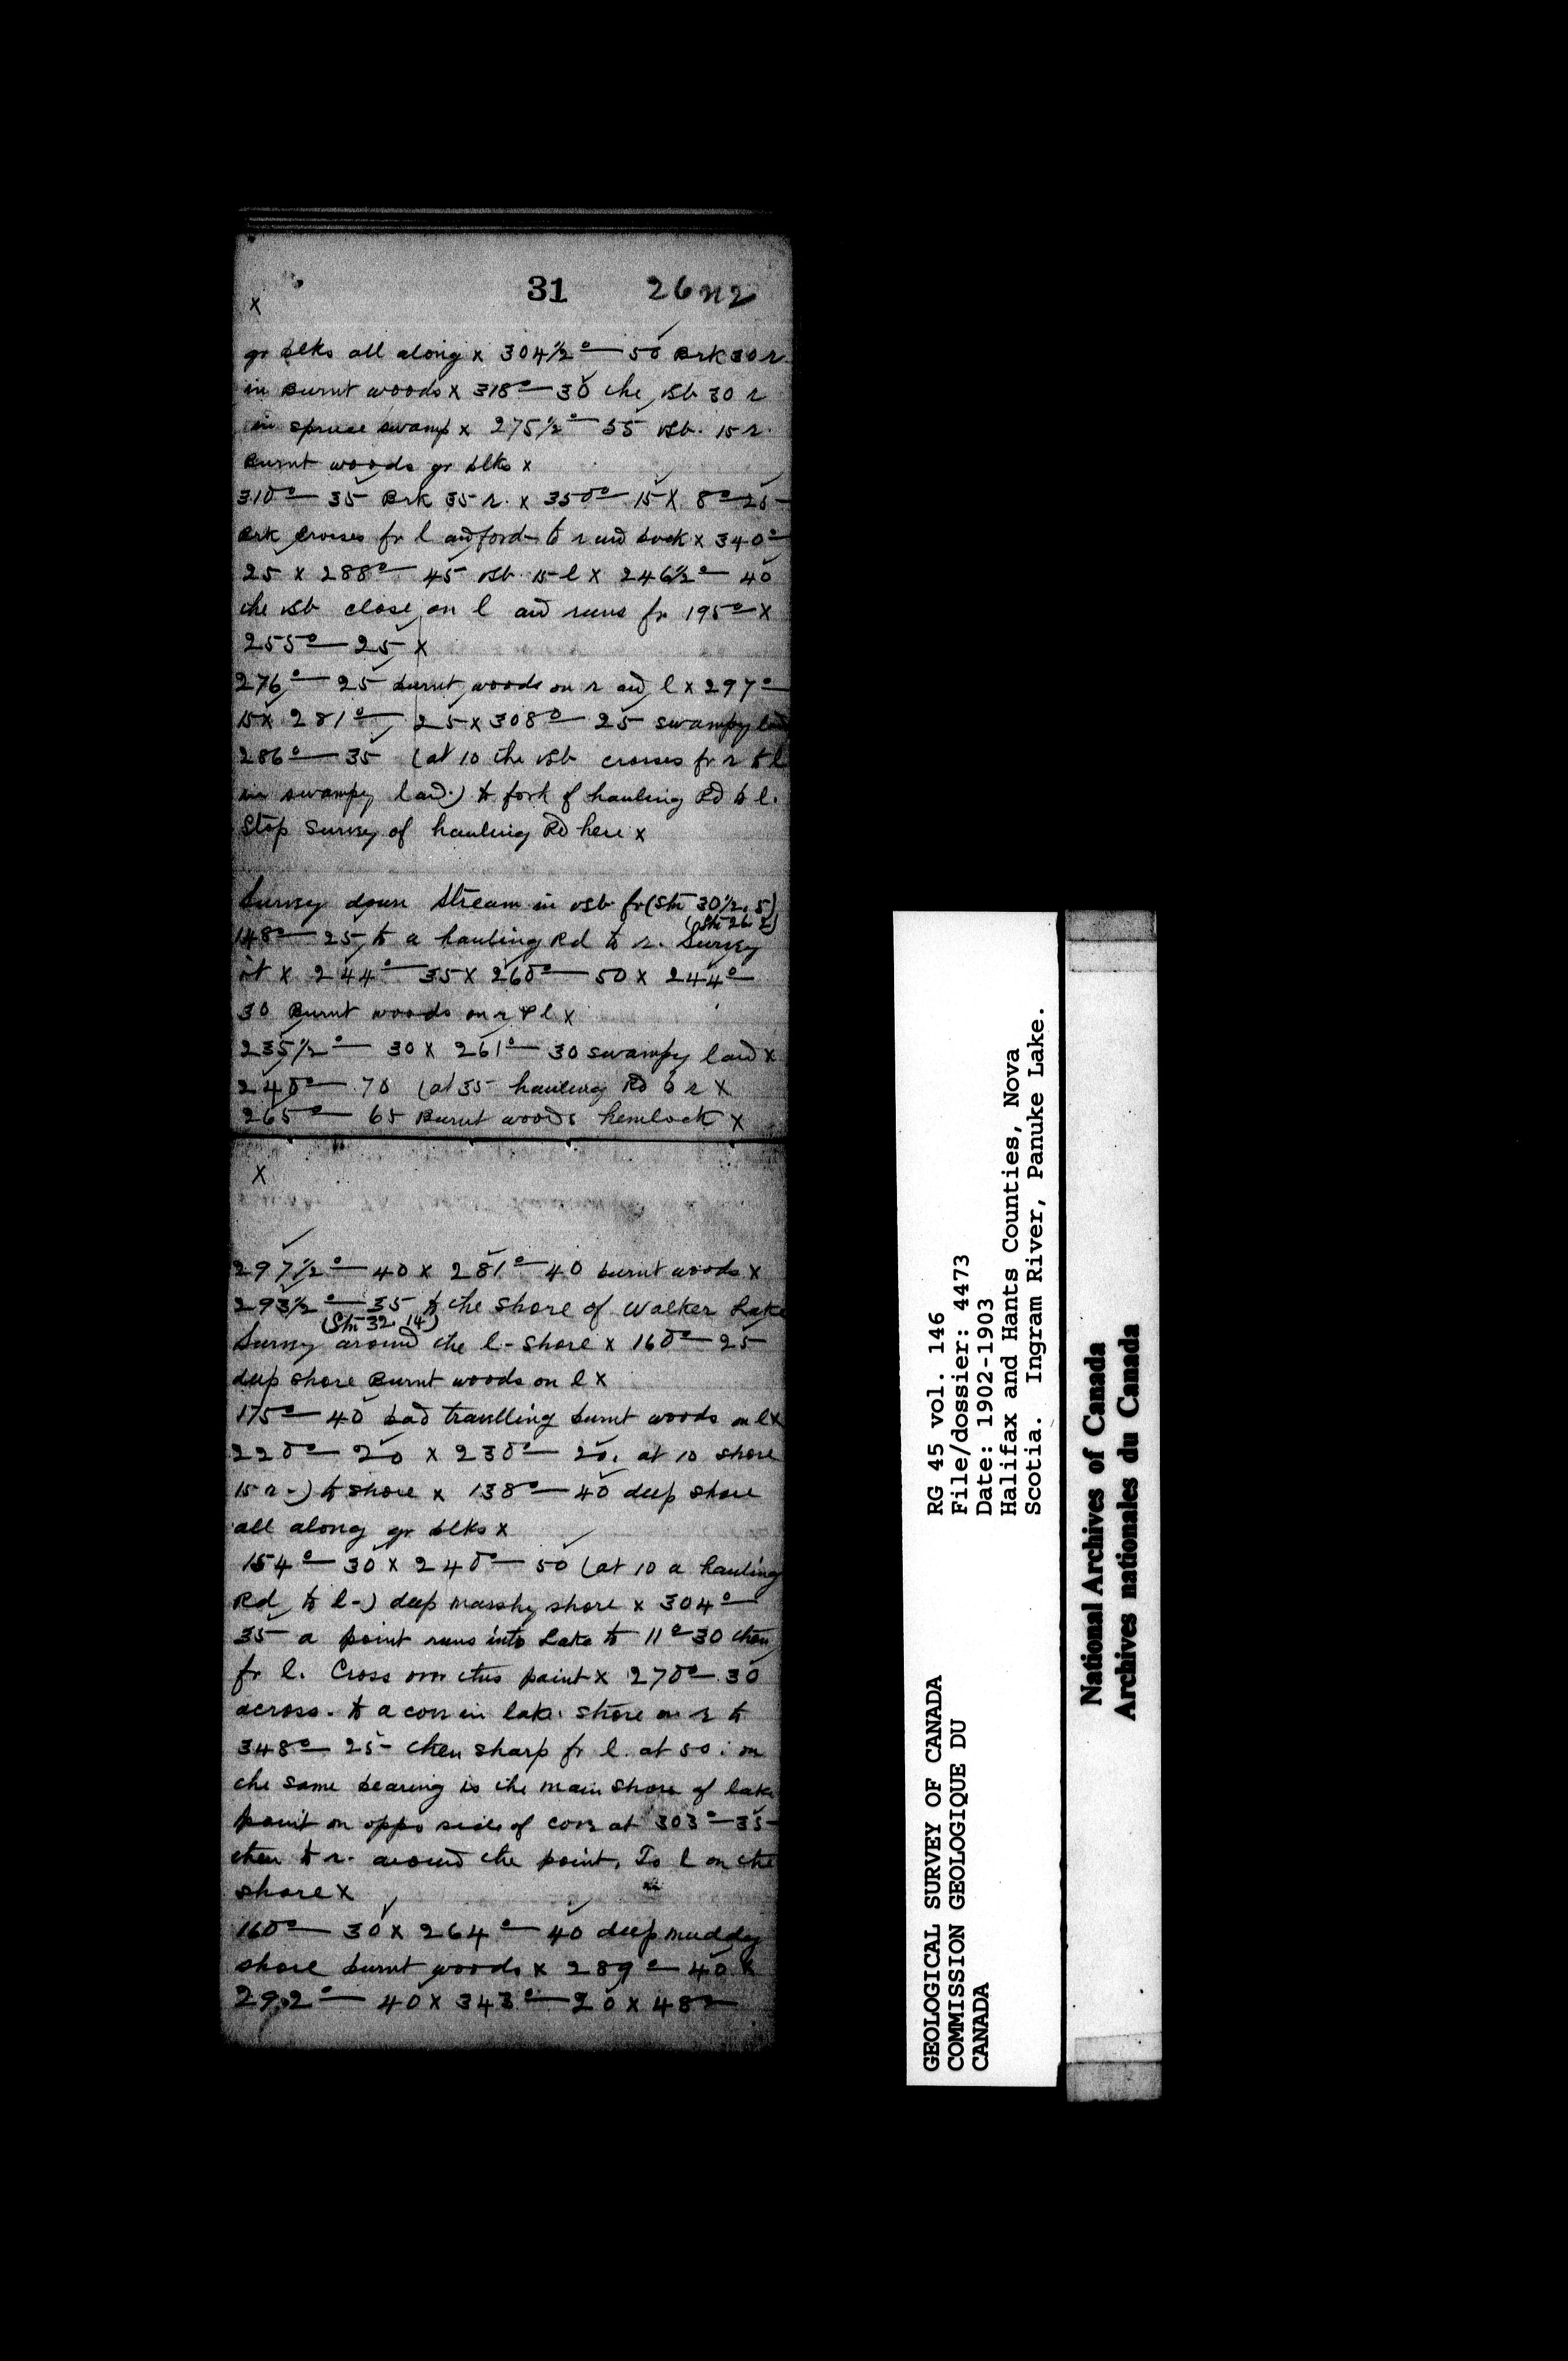 31 26n2
x
gr blks all along x 304½° — 50 Brk 30 r.
in Burnt woods x 318° — 30 the vsb 30 r
in spruce swamp x 275½° — 55 vsb. 15 r.
Burnt woods gr blks x
310° — 35 Brk 35 r. x 350° 15 x 8° 25 -
Brk crosses fr l and ford to r and back x 340° —
25 x 288° — 45 vsb 15 l x 246½° — 40
the vsb close on l and runs fr 195° x
255° — 25 x
276° — 25 burnt woods on r and l x 297° —
15 x 281° — 25 x 308° — 25 swampy land
286° — 35 (at 10 the vsb crosses fr r to l
in swampy land.) to fork of hauling Rd to l.
Stop Survey of hauling Rd here x
Survey down Stream in vsb fr (Stn 30½. 5)
(Stn 26. 2)
148° — 25 to a hauling Rd to r. Survey
it x 244° — 35 x 260° — 50 x 244° —
30 Burnt woods on r & l x
235½° — 30 x 261° — 30 swampy land x
240° — 70 (at 35 hauling Rd to r x
265° — 65 Burnt woods hemlock x
x
297½° — 40 x 281° — 40 burnt woods x
293½° — 35 to the shore of Walker Lake
(Stn 32. 14)
Survey around the l - shore x 160° — 25
deep shore Burnt woods on l x
175° — 40 bad travelling burnt woods on l x
220° — 20 x 230° — 20. at 10 shore
15 r -) to shore x 138° — 40 deep shore
all along gr blks x
154° — 30 x 240° — 50 (at 10 a hauling
Rd to l -) deep marshy shore x 304° —
35 a point runs into Lake to 11° 30 then
fr l. Cross over this point x 270° — 30
across. to a cove in lake. shore on r to
348° — 25 - then sharp fr l. at 50. on
the same bearing is the main shore of lake
point on oppo side of cove at 303° — 35 -
then to r. around the point. To l on the
shore x
160° — 30 x 264° — 40 deep muddy
shore burnt woods x 289° — 40 x
292° — 40 x 343° — 20 x 48° —
GEOLOGICAL SURVEY OF CANADA
COMMISSION GEOLOGIQUE DU
CANADA
RG 45 vol. 146
File/dossier: 4473
Date: 1902-1903
Halifax and Hants Counties, Nova
Scotia. Ingram River, Panuke Lake.
National Archives of Canada
Archives nationales du Canada